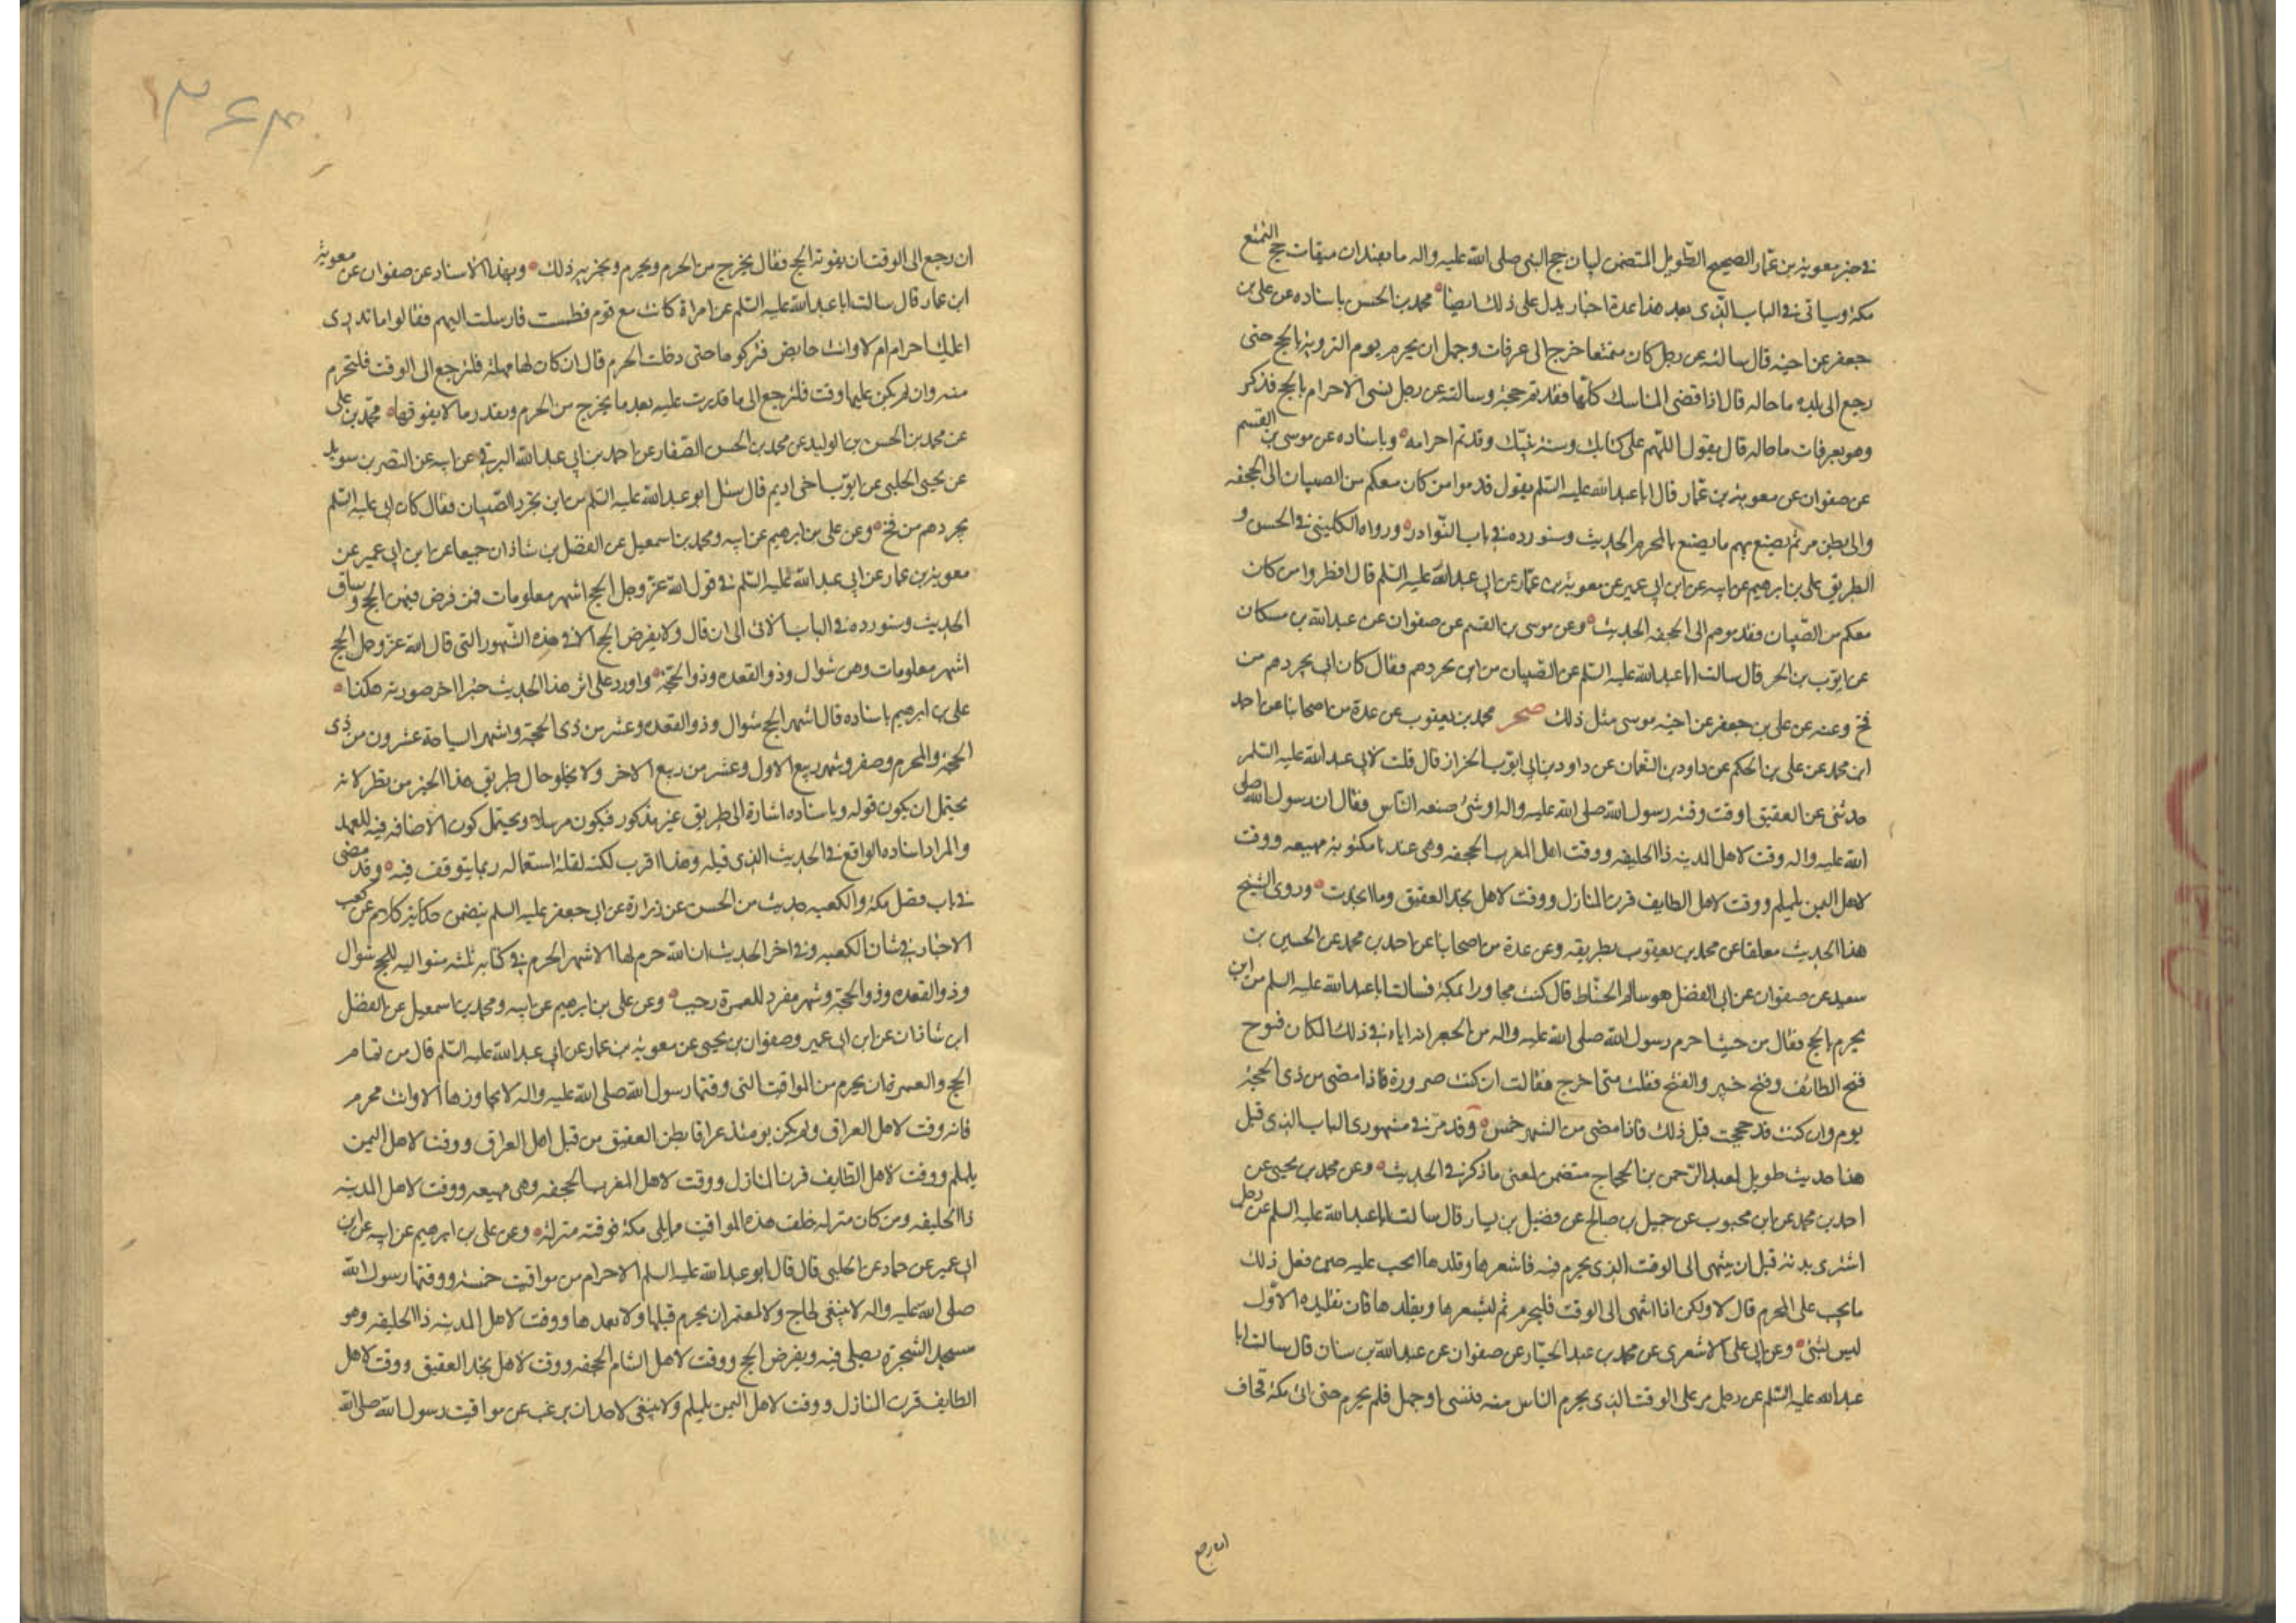 في خبر معوية بن عمار الصحيح الطويل المتضمن لبيان حج النبي صلى الله عليه واله ما يفيد ان ميقات حج التمتع
مكة وسياتي في الباب الذي بعد هذا عدة اخبار يدل على ذلك ايضا محمد بن الحسن باسناده عن علي بن
جعفر عن اخيه قال سالته عن رجل كان متمتعا خرج الى عرفات وجهل ان يحرم يوم التروية بالحج حتى
رجع الى بلده ما حاله قال اذا قضى المناسك كلها فقد تم حجه وسالته عن رجل نسي الاحرام بالحج فذكر
وهو بعرفات ما حاله قال يقول اللهم على كتابك وسنة نبيك وقد تم احرامه وباسناده عن موسى بن القسم
عن صفوان عن معوية بن عمار قال ابا عبد الله عليه السلم يقول قدموا من كان معكم من الصبيان الى الجحفه
والى بطن مر ثم يصنع بهم ما يصنع بالمحرم الحديث وسنورده في باب النوادر ورواه الكليني في الحسن و
الطريق علي بن ابرهيم عن ابيه عن ابن ابي عمير عن معوية بن عمار عن ابي عبد الله عليه السلم قال انظروا من كان
معكم من الصبيان فقدموهم الى الجحفه الحديث وعن موسى بن القسم عن صفوان عن عبد الله بن مسكان
عن ايوب بن الحر قال سالت ابا عبد الله عليه السلم عن الصبيان من اين نجردهم فقال كان ابي يجردهم من
فخ وعنه عن علي بن جعفر عن اخيه موسى مثل ذلك صحر محمد بن يعقوب عن عدة من اصحابنا عن احمد
ابن محمد عن علي بن الحكم عن داود بن النعمان عن داود بن ابي ايوب الخزاز قال قلت لابي عبد الله عليه السلم
حدثني عن العقيق اوقت وقته رسول الله صلى الله عليه واله او شئ صنعه الناس فقال ان رسول الله صلى
الله عليه واله وقت لاهل المدينه ذا الحليفه ووقت لاهل المغرب الجحفه وهي عندنا مكتوبة مهيعه ووقت
لاهل اليمن يلملم ووقت لاهل الطايف قرن المنازل ووقت لاهل نجد العقيق وما انجدت وروى الشيخ
هذا الحديث معلقا عن محمد بن يعقوب بطريقه وعن عدة من اصحابنا عن احمد بن محمد عن الحسين بن
سعيد عن صفوان عن ابي الفضل هو سالم الحناط قال كنت مجاورا بمكة فسالت ابا عبد الله عليه السلم من اين
يحرم بالحج فقال من حيث احرم رسول الله صلى الله عليه واله من الجعرانه اياه في ذلك المكان فتوح
فتح الطائف وفتح خيبر والفتح فقلت متى اخرج فقالت ان كنت صرورة فاذا مضى من ذي الحجة
يوم وان كنت قد حججت قبل ذلك فاذا مضى من الشهر خمس وقد مر في مشهوري الباب الذي قبل
هذا حديث طويل لعبد الرحمن بن الحجاج متضمن لمعنى ما ذكر في الحديث وعن محمد بن يحيى عن
احمد بن محمد عن ابن محبوب عن جميل بن صالح عن فضيل بن يسار قال سالت ابا عبد الله عليه السلم عن رجل
اشترى بدنة قبل ان ينتهي الى الوقت الذي يحرم فيه فاشعرها وقلدها ايجب عليه حين فعل ذلك
ما يجب على المحرم قال لا ولكن اذا انتهى الى الوقت فليحرم ثم ليشعرها ويقلدها فان تقليده الاول
ليس بشئ وعن ابي علي الاشعري عن محمد بن عبد الجبار عن صفوان عن عبد الله بن سنان قال سالت ابا
عبد الله عليه السلم عن رجل مر على الوقت الذي يحرم الناس منه فنسي او جهل فلم يحرم حتى اتى مكة فخاف
ان رجع
١٣٦٤
ان رجع الى الوقت ان يفوته الحج فقال يخرج من الحرم ويحرم ويجزيه ذلك وبهذا الاسناد عن صفوان عن معوية
ابن عمار قال سالت ابا عبد الله عليه السلم عن امراة كانت مع قوم فطمست فارسلت اليهم فقالوا ما ندري
اعليك احرام ام لا وانت حايض فتركوها حتى دخلت الحرم قال ان كان لها مهلة فلترجع الى الوقت فلتحرم
منه وان لم يكن عليها وقت فلترجع الى ما قدرت عليه بعد ما يخرج من الحرم وبقدر ما لا يفوقها محمد بن علي
عن محمد بن الحسن بن الوليد عن محمد بن الحسن الصفار عن احمد بن ابي عبد الله البرقي عن ابيه عن النضر بن سويد
عن يحيى الحلبي عن ايوب اخي اديم قال سئل ابو عبد الله عليه السلم من اين تجرد الصبيان فقال كان ابي عليه السلم
يجردهم من فخ وعن علي بن ابرهيم عن ابيه ومحمد بن اسمعيل عن الفضل بن شاذان جميعا عن ابن ابي عمير عن
معوية بن عمار عن ابي عبد الله عليه السلم في قول الله عز وجل الحج اشهر معلومات فمن فرض فيهن الحج وساق
الحديث وسنورده في الباب الاتي الى ان قال ولا يفرض الحج الا في هذه الشهور التي قال الله عز وجل الحج
اشهر معلومات وهن شوال وذو القعده وذو الحجة واورد على اثر هذا الحديث خبرا اخر صورته هكذا
علي بن ابرهيم باسناده قال اشهر الحج شوال وذو القعده وعشر من ذي الحجة واشهر السياحة عشرون من ذي
الحجة والمحرم وصفر وشهر ربيع الاول وعشر من ربيع الاخر ولا يخلو حال طريق هذا الخبر من نظر لانه
يحتمل ان يكون قوله وباسناده اشارة الى طريق غير مذكور فيكون مرسلا ويحتمل كون الاضافه فيه للعهد
والمراد اسناده الواقع في الحديث الذي قبله وهذا اقرب لكنه لقلة استعماله ربما يتوقف فيه وقد مضى
في باب فضل مكة والكعبه حديث من الحسن عن زرارة عن ابي جعفر عليه السلم يتضمن حكاية كلام عن كعب
الاحبار في شان الكعبه وفي اخر الحديث ان الله حرم لها الاشهر الحرم في كتابه ثلثه متواليه للحج شوال
وذو القعده وذو الحجة وشهر مفرد للعمرة رجب وعن علي بن ابرهيم عن ابيه ومحمد بن اسمعيل عن الفضل
ابن شاذان عن ابن ابي عمير وصفوان بن يحيى عن معوية بن عمار عن ابي عبد الله عليه السلم قال من تمام
الحج والعمرة ان يحرم من المواقيت التي وقتها رسول الله صلى الله عليه واله لا يجاوزها الا وانت محرم
فانه وقت لاهل العراق ولم يكن يومئذ عراق بطن العقيق من قبل اهل العراق ووقت لاهل اليمن
يلملم ووقت لاهل الطايف قرن المنازل ووقت لاهل المغرب الجحفه وهي مهيعه ووقت لاهل المدينه
ذا الحليفه ومن كان منزله خلف هذه المواقيت مما يلي مكة فوقته منزله وعن علي بن ابرهيم عن ابيه عن ابن
ابي عمير عن حماد عن الحلبي قال قال ابو عبد الله عليه السلم الاحرام من مواقيت خمسه ووقتها رسول الله
صلى الله عليه واله لا ينبغي لحاج ولا لمعتمر ان يحرم قبلها ولا بعدها ووقت لاهل المدينه ذا الحليفه وهو
مسجد الشجرة يصلي فيه ويفرض الحج ووقت لاهل الشام الجحفه ووقت لاهل نجد العقيق ووقت لاهل
الطايف قرن المنازل ووقت لاهل اليمن يلملم ولا ينبغي لاحد ان يرغب عن مواقيت رسول الله صلى الله